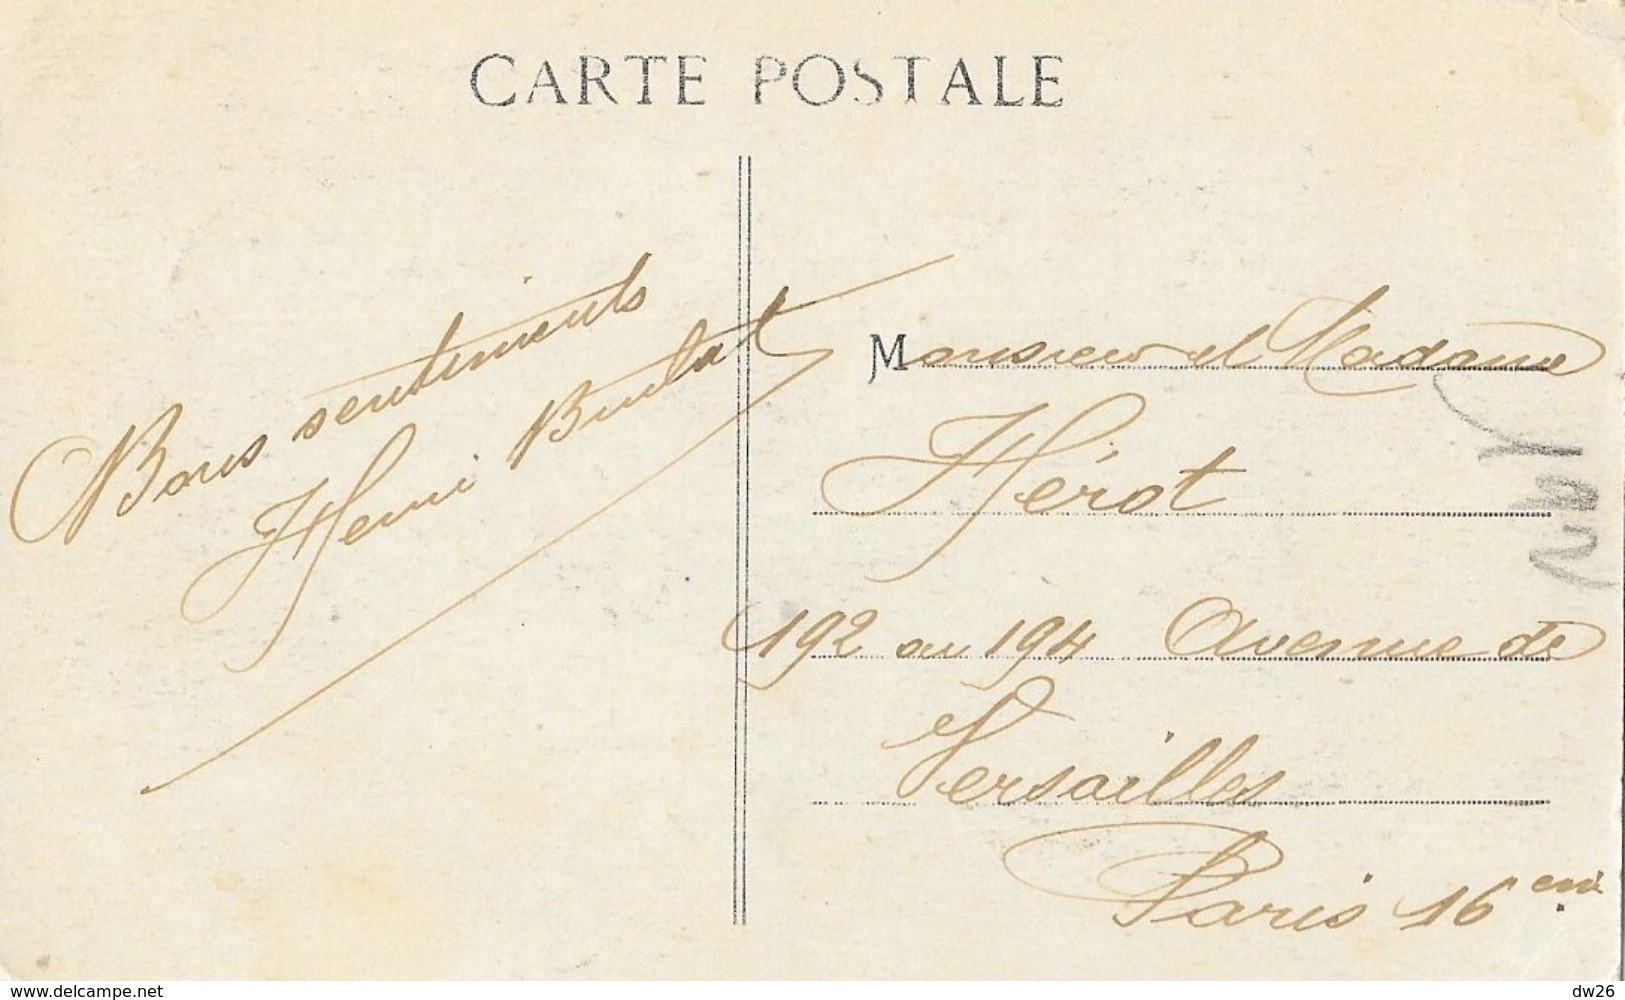 CARTE POSTALE
Bons sentiments
Henri Bulat
Monsieur et Madame
Hérot
192 ou 194 Avenue de
Versailles
Paris 16 eme
www.delcampe.net
dw26